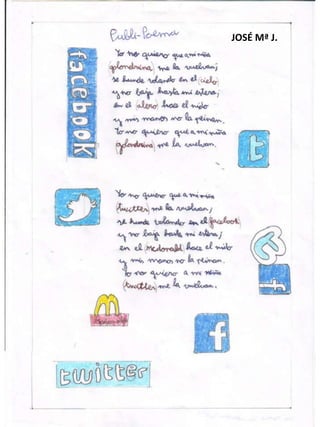 Publi-Poema
JOSÉ Mª J.
facebook
Yo no quiero que a mi niña
golondrina me la vuelvan;
se hunde volando en el cielo
y no baja hasta mi estera;
en el alero hace el nido
y mis manos no la peinan.
Yo no quiero que a mi niña
golondrina me la vuelvan.
t
Yo no quiero que a mi niña
twitter me la vuelvan;
se hunde volando en el facebook
y no baja hasta mi estera;
en el Mcdonald hace el nido
y mis manos no la peinan.
Yo no quiero a mi niña
twitter me la vuelvan.
t
f
m
f
twitter